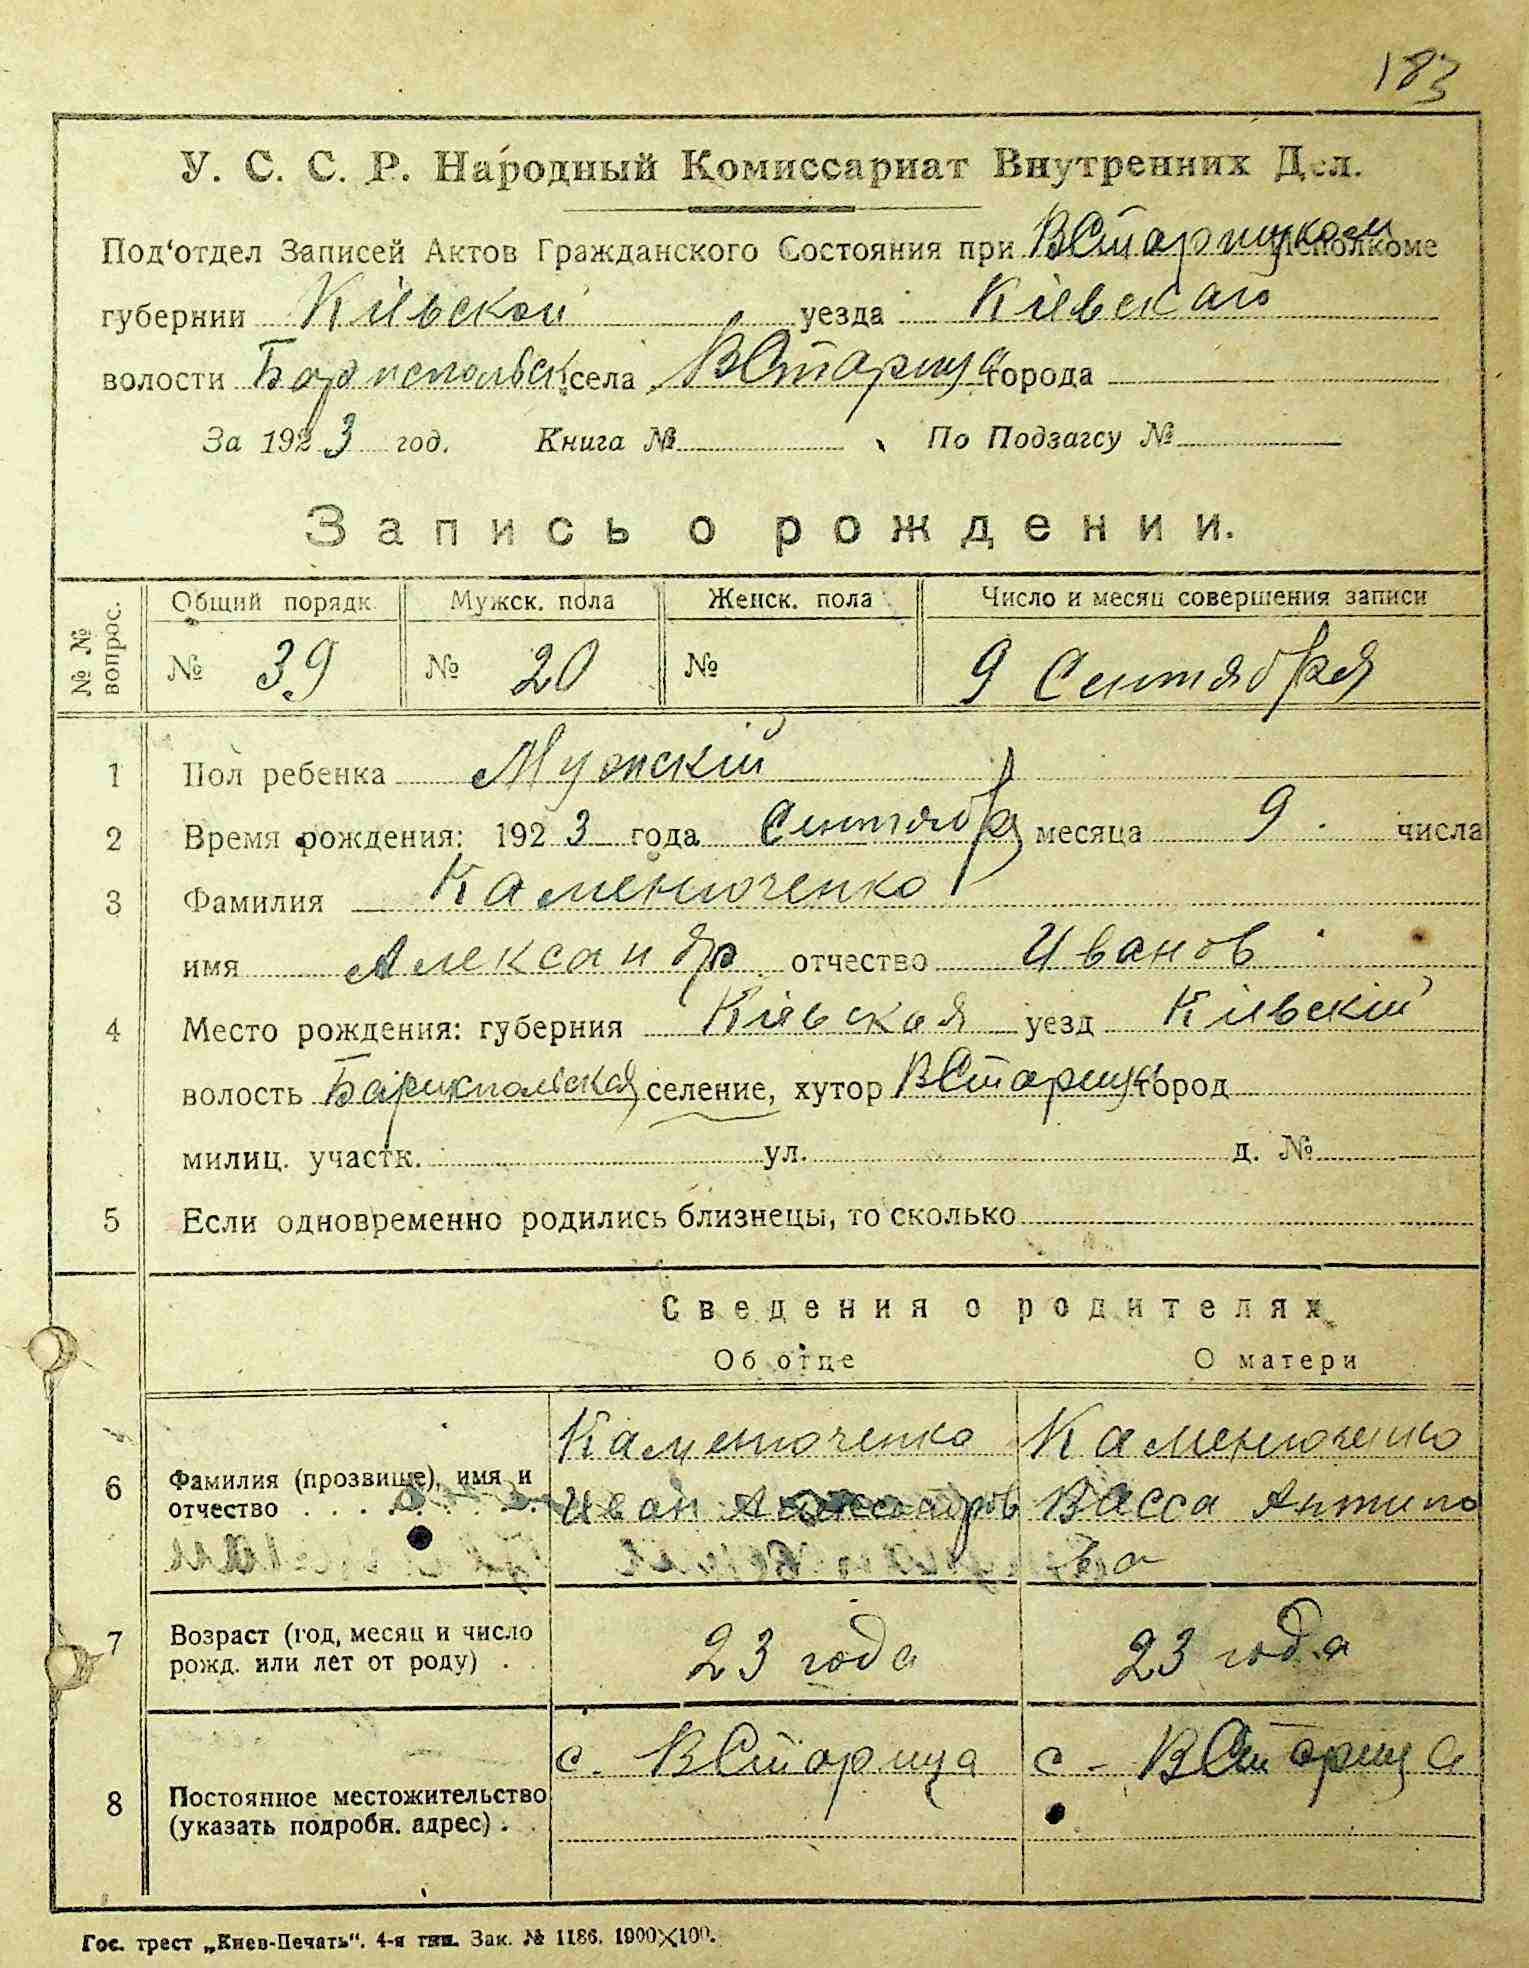 183
У. С. С. Р. Народный Комиссариат Внутренних Дел.
Под‘отдел Записей Актов Гражданского Состояния при ВСтарицком исполкоме
губернии Кіевской уезда Кіевскаго
волости Бориспольск села ВСтарица города
За 1923 год. Книга № По Подзагсу №
Запись о рождении.
№ № вопрос. Общий порядк. Мужск. пола Женск. пола Число и месяц совершения записи
№ 39 № 20 № 9 Сентября
1 Пол ребенка Мужскій
2 Время рождения: 1923 года Сентября месяца 9 числа
3 Фамилия Каменюченко
имя Александр отчество Иванов
4 Место рождения: губерния Кіевская уезд Кіевскій
волость Барикпольская селение, хутор ВСтарица город
милиц. участк. ул. д. №
5 Если одновременно родились близнецы, то сколько
Сведения о родителях
Об отце О матери
Каменюченко Каменюченко
6 Фамилия (прозвище), имя и
отчество . . . . Иван Александров Васса Антипо
ва
7 Возраст (год, месяц и число
рожд. или лет от роду) . . 23 года 23 года
с. ВСтарица с - ВСтарица
8 Постоянное местожительство
(указать подробн. адрес) . .
Гос. трест „Киев-Печать“. 4-я тип. Зак. № 1186. 1900×100.